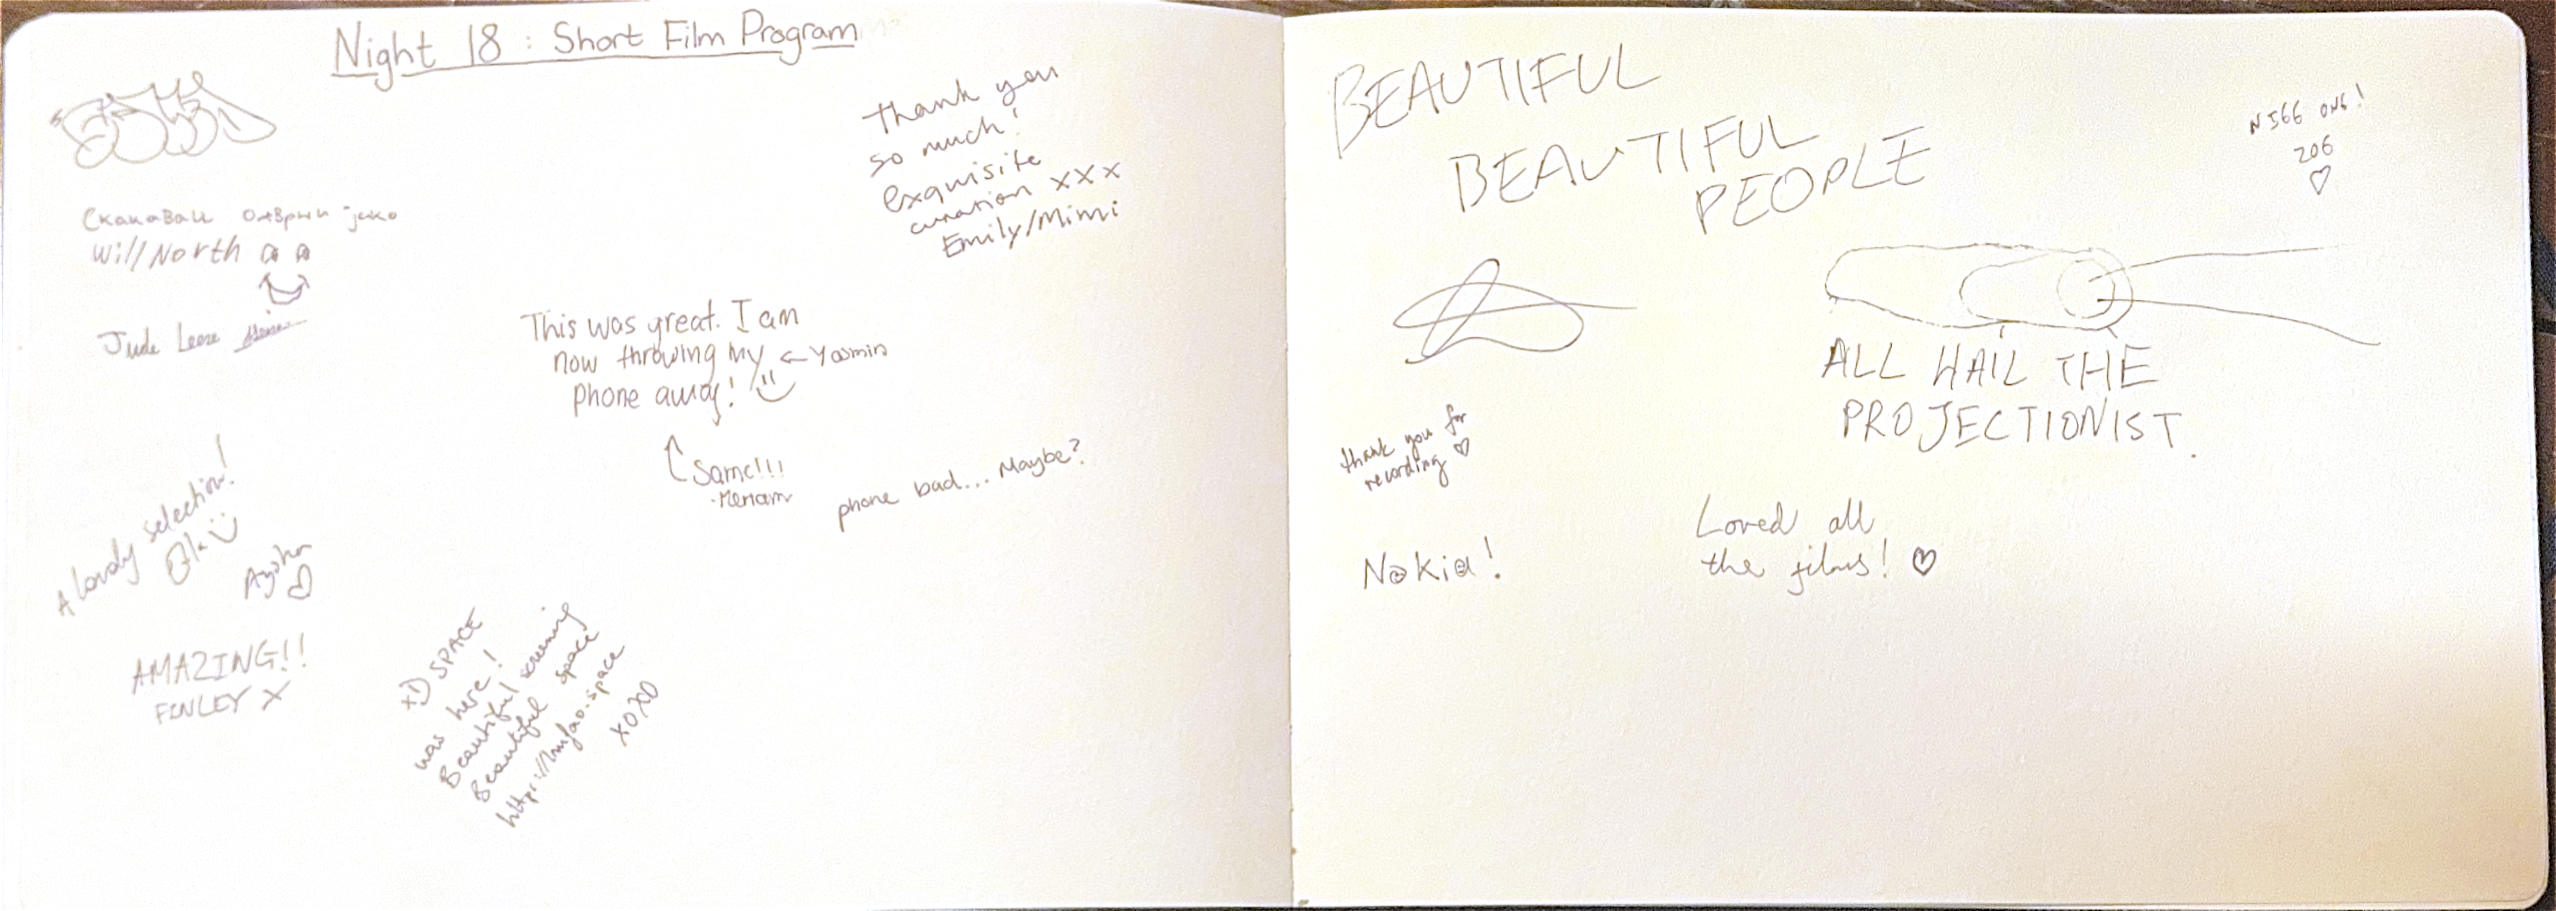 Night 18 : Short Film Program
Will North
Jude Leese
thank you
so much!
exquisite
curation xxx
Emily/Mimi
This was great. I am
now throwing my ← Yasmin
phone away!
Same!!!
-Meriam
phone bad... Maybe?
A lovely selection!
AMAZING!!
FINLEY X
xD SPACE
was here!
Beautiful screening
Beautiful space
http://lmfao.space
XOXO
BEAUTIFUL
BEAUTIFUL
PEOPLE
206
♡
ALL HAIL THE
PROJECTIONIST.
thank you for
recording ♡
Nokia!
Loved all
the films! ♡